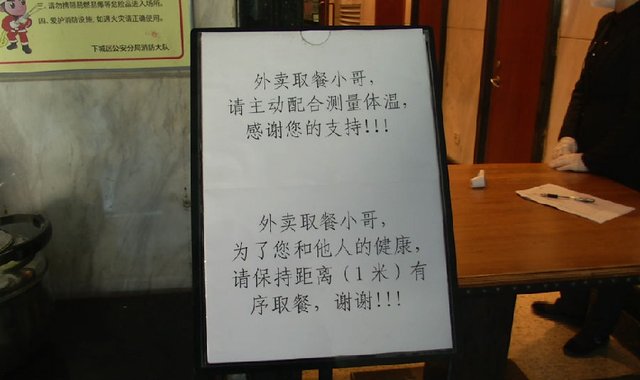 请勿携带易燃易爆等危险品进入场所。
四、爱护消防设施,如遇火灾请正确使用。
下城区公安分局消防大队
外卖取餐小哥,
请主动配合测量体温,
感谢您的支持!!!
外卖取餐小哥,
为了您和他人的健康,
请保持距离(1米)有
序取餐,谢谢!!!